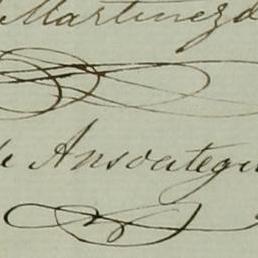 Martinez d
de Ansoategui